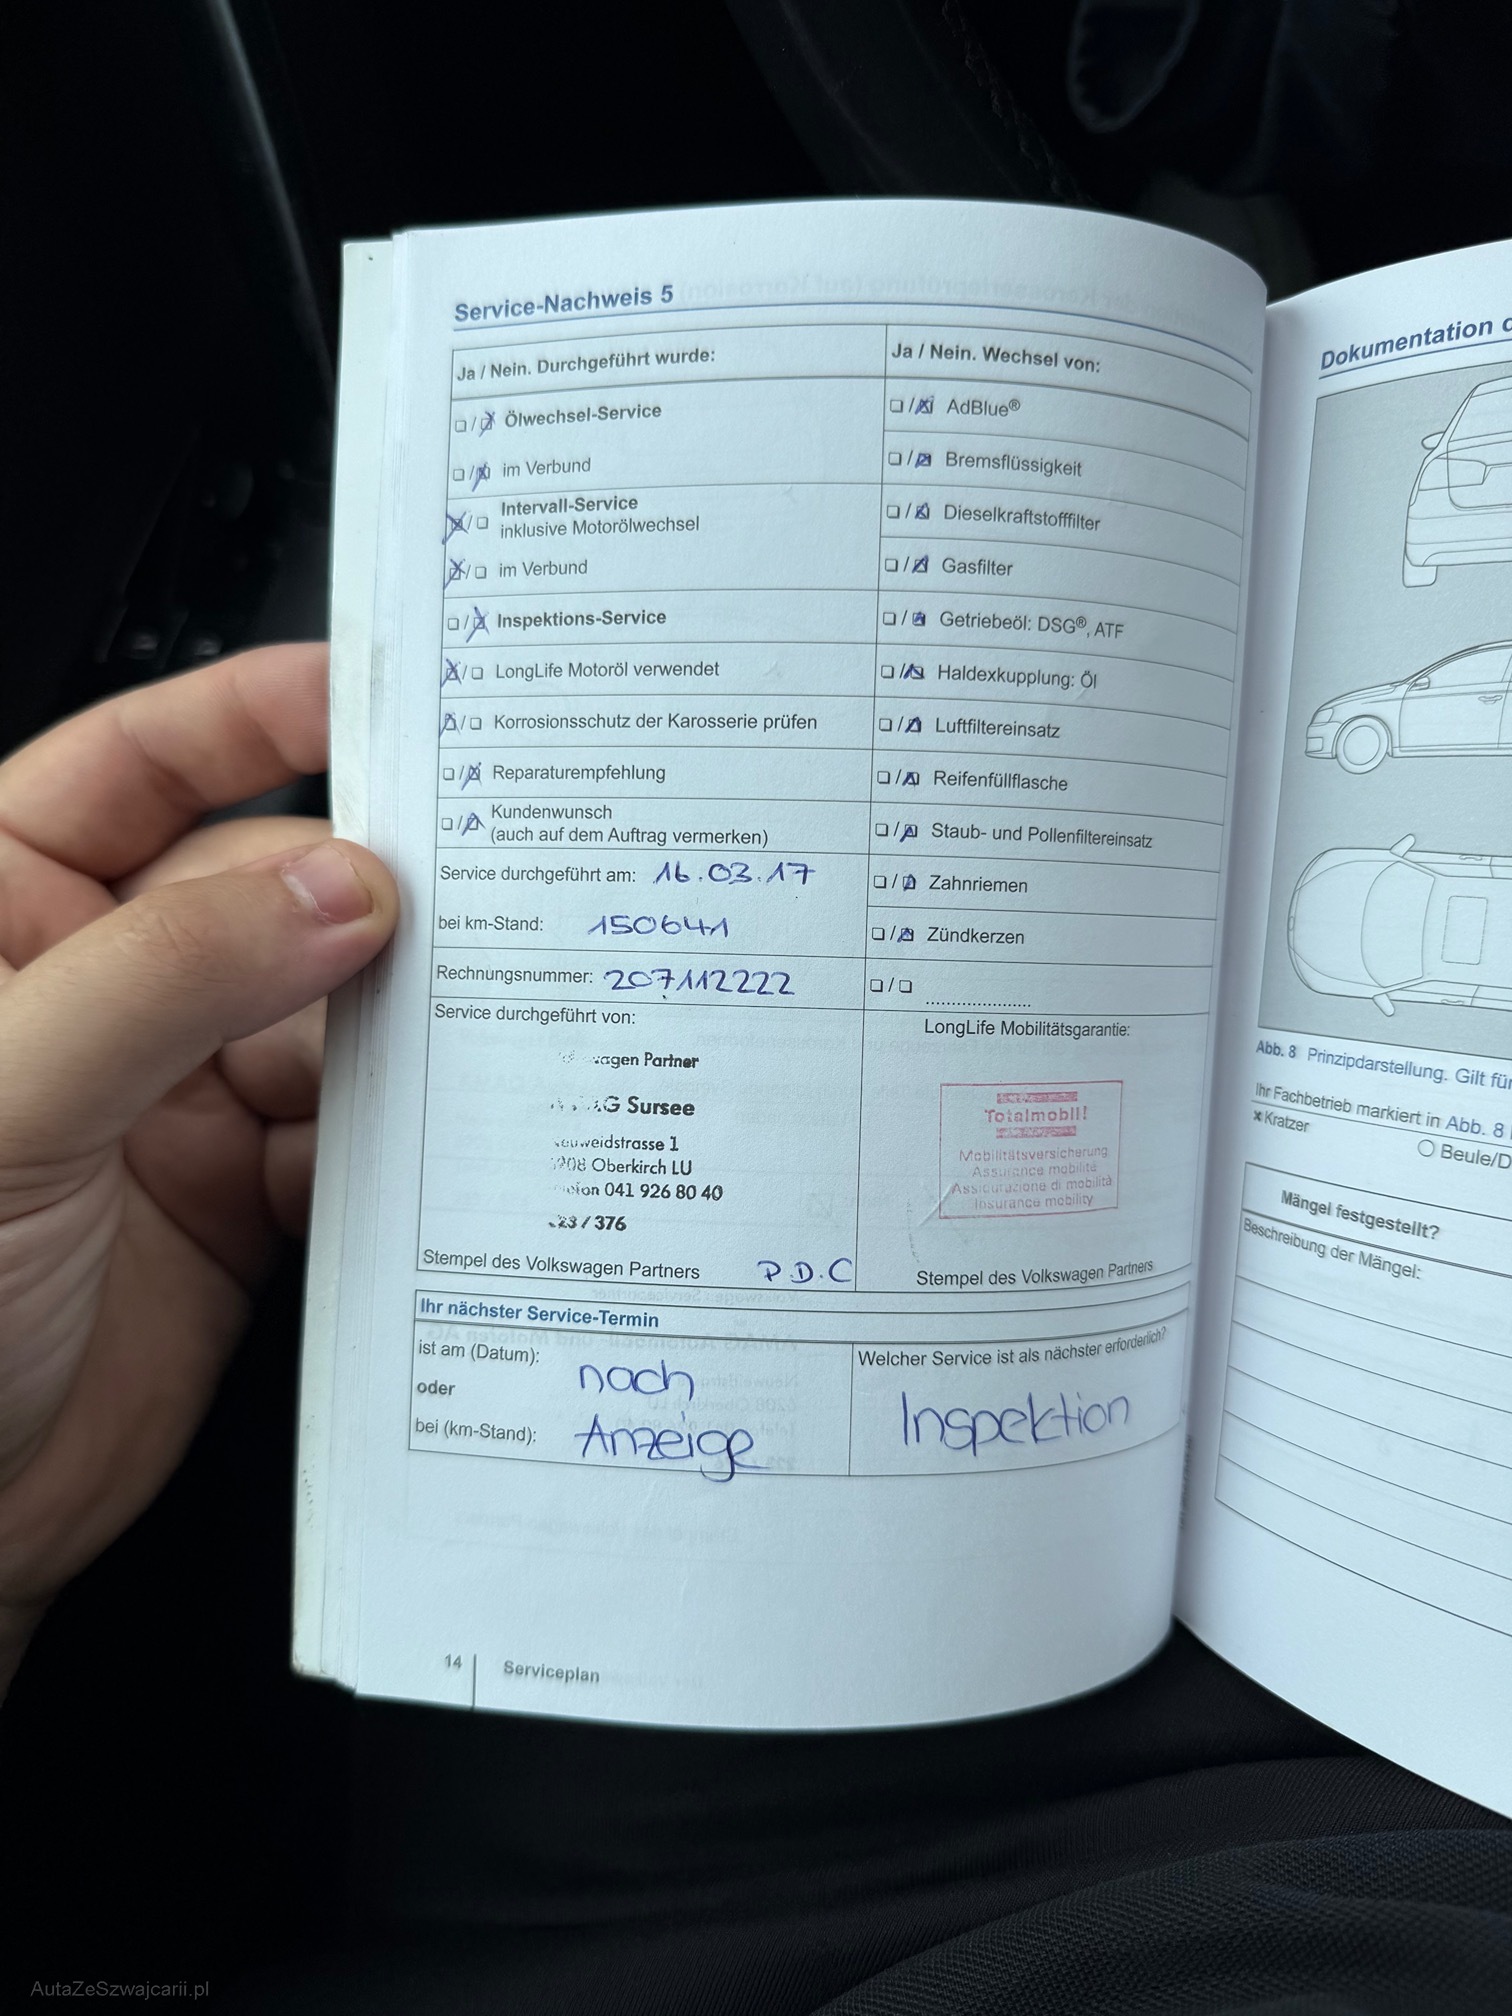 Service-Nachweis 5
Ja / Nein. Durchgeführt wurde:
Ja / Nein. Wechsel von:
☐/☒ Ölwechsel-Service
☐/☒ im Verbund
☒/☐ Intervall-Service
inklusive Motorölwechsel
☒/☐ im Verbund
☐/☒ Inspektions-Service
☒/☐ LongLife Motoröl verwendet
☒/☐ Korrosionsschutz der Karosserie prüfen
☐/☒ Reparaturempfehlung
☐/☒ Kundenwunsch
(auch auf dem Auftrag vermerken)
☐/☒ AdBlue®
☐/☒ Bremsflüssigkeit
☐/☒ Dieselkraftstofffilter
☐/☒ Gasfilter
☐/☒ Getriebeöl: DSG®, ATF
☐/☒ Haldexkupplung: Öl
☐/☒ Luftfiltereinsatz
☐/☒ Reifenfüllflasche
☐/☒ Staub- und Pollenfiltereinsatz
☐/☒ Zahnriemen
☐/☒ Zündkerzen
☐/☐ .....................
Service durchgeführt am: 16.03.17
bei km-Stand: 150641
Rechnungsnummer: 207112222
Service durchgeführt von:
Partner
Sursee
1
Oberkirch LU
041 926 80 40
/ 376
Stempel des Volkswagen Partners P.D.C
LongLife Mobilitätsgarantie:
Totalmobil!
Mobilitätsversicherung
Assurance mobilité
Assicurazione di mobilità
Insurance mobility
Stempel des Volkswagen Partners
Ihr nächster Service-Termin
ist am (Datum):
oder
bei (km-Stand):
nach
Anzeige
Welcher Service ist als nächster erforderlich?
Inspektion
14 Serviceplan
Dokumentation
Abb. 8 Prinzipdarstellung. Gilt für
Ihr Fachbetrieb markiert in Abb. 8
✖ Kratzer
○ Beule/D
Mängel festgestellt?
Beschreibung der Mängel:
AutaZeSzwajcarii.pl